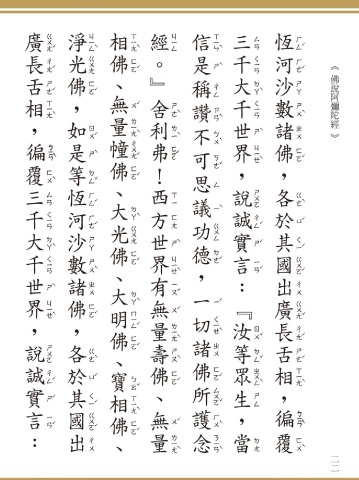 《佛說阿彌陀經》
恆河沙數諸佛，各於其國出廣長舌相，徧覆
三千大千世界，說誠實言：『汝等眾生，當
信是稱讚不可思議功德，一切諸佛所護念
經。』舍利弗！西方世界有無量壽佛、無量
相佛、無量幢佛、大光佛、大明佛、寶相佛、
淨光佛，如是等恆河沙數諸佛，各於其國出
廣長舌相，徧覆三千大千世界，說誠實言：